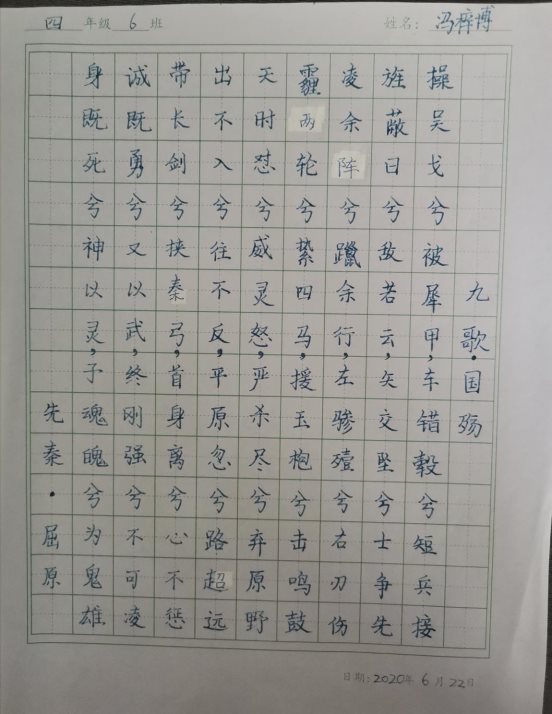 四年级 6 班 姓名：冯梓博
九歌·国殇
操吴戈兮被犀甲，车错毂兮短兵接
旌蔽日兮敌若云，矢交坠兮士争先
凌余阵兮躐余行，左骖殪兮右刃伤
霾两轮兮絷四马，援玉枹兮击鸣鼓
天时怼兮威灵怒，严杀尽兮弃原野
出不入兮往不反，平原忽兮路超远
带长剑兮挟秦弓，首身离兮心不惩
诚既勇兮又以武，终刚强兮不可凌
身既死兮神以灵，子魂魄兮为鬼雄
先秦·屈原
日期：2020年 6 月 22日